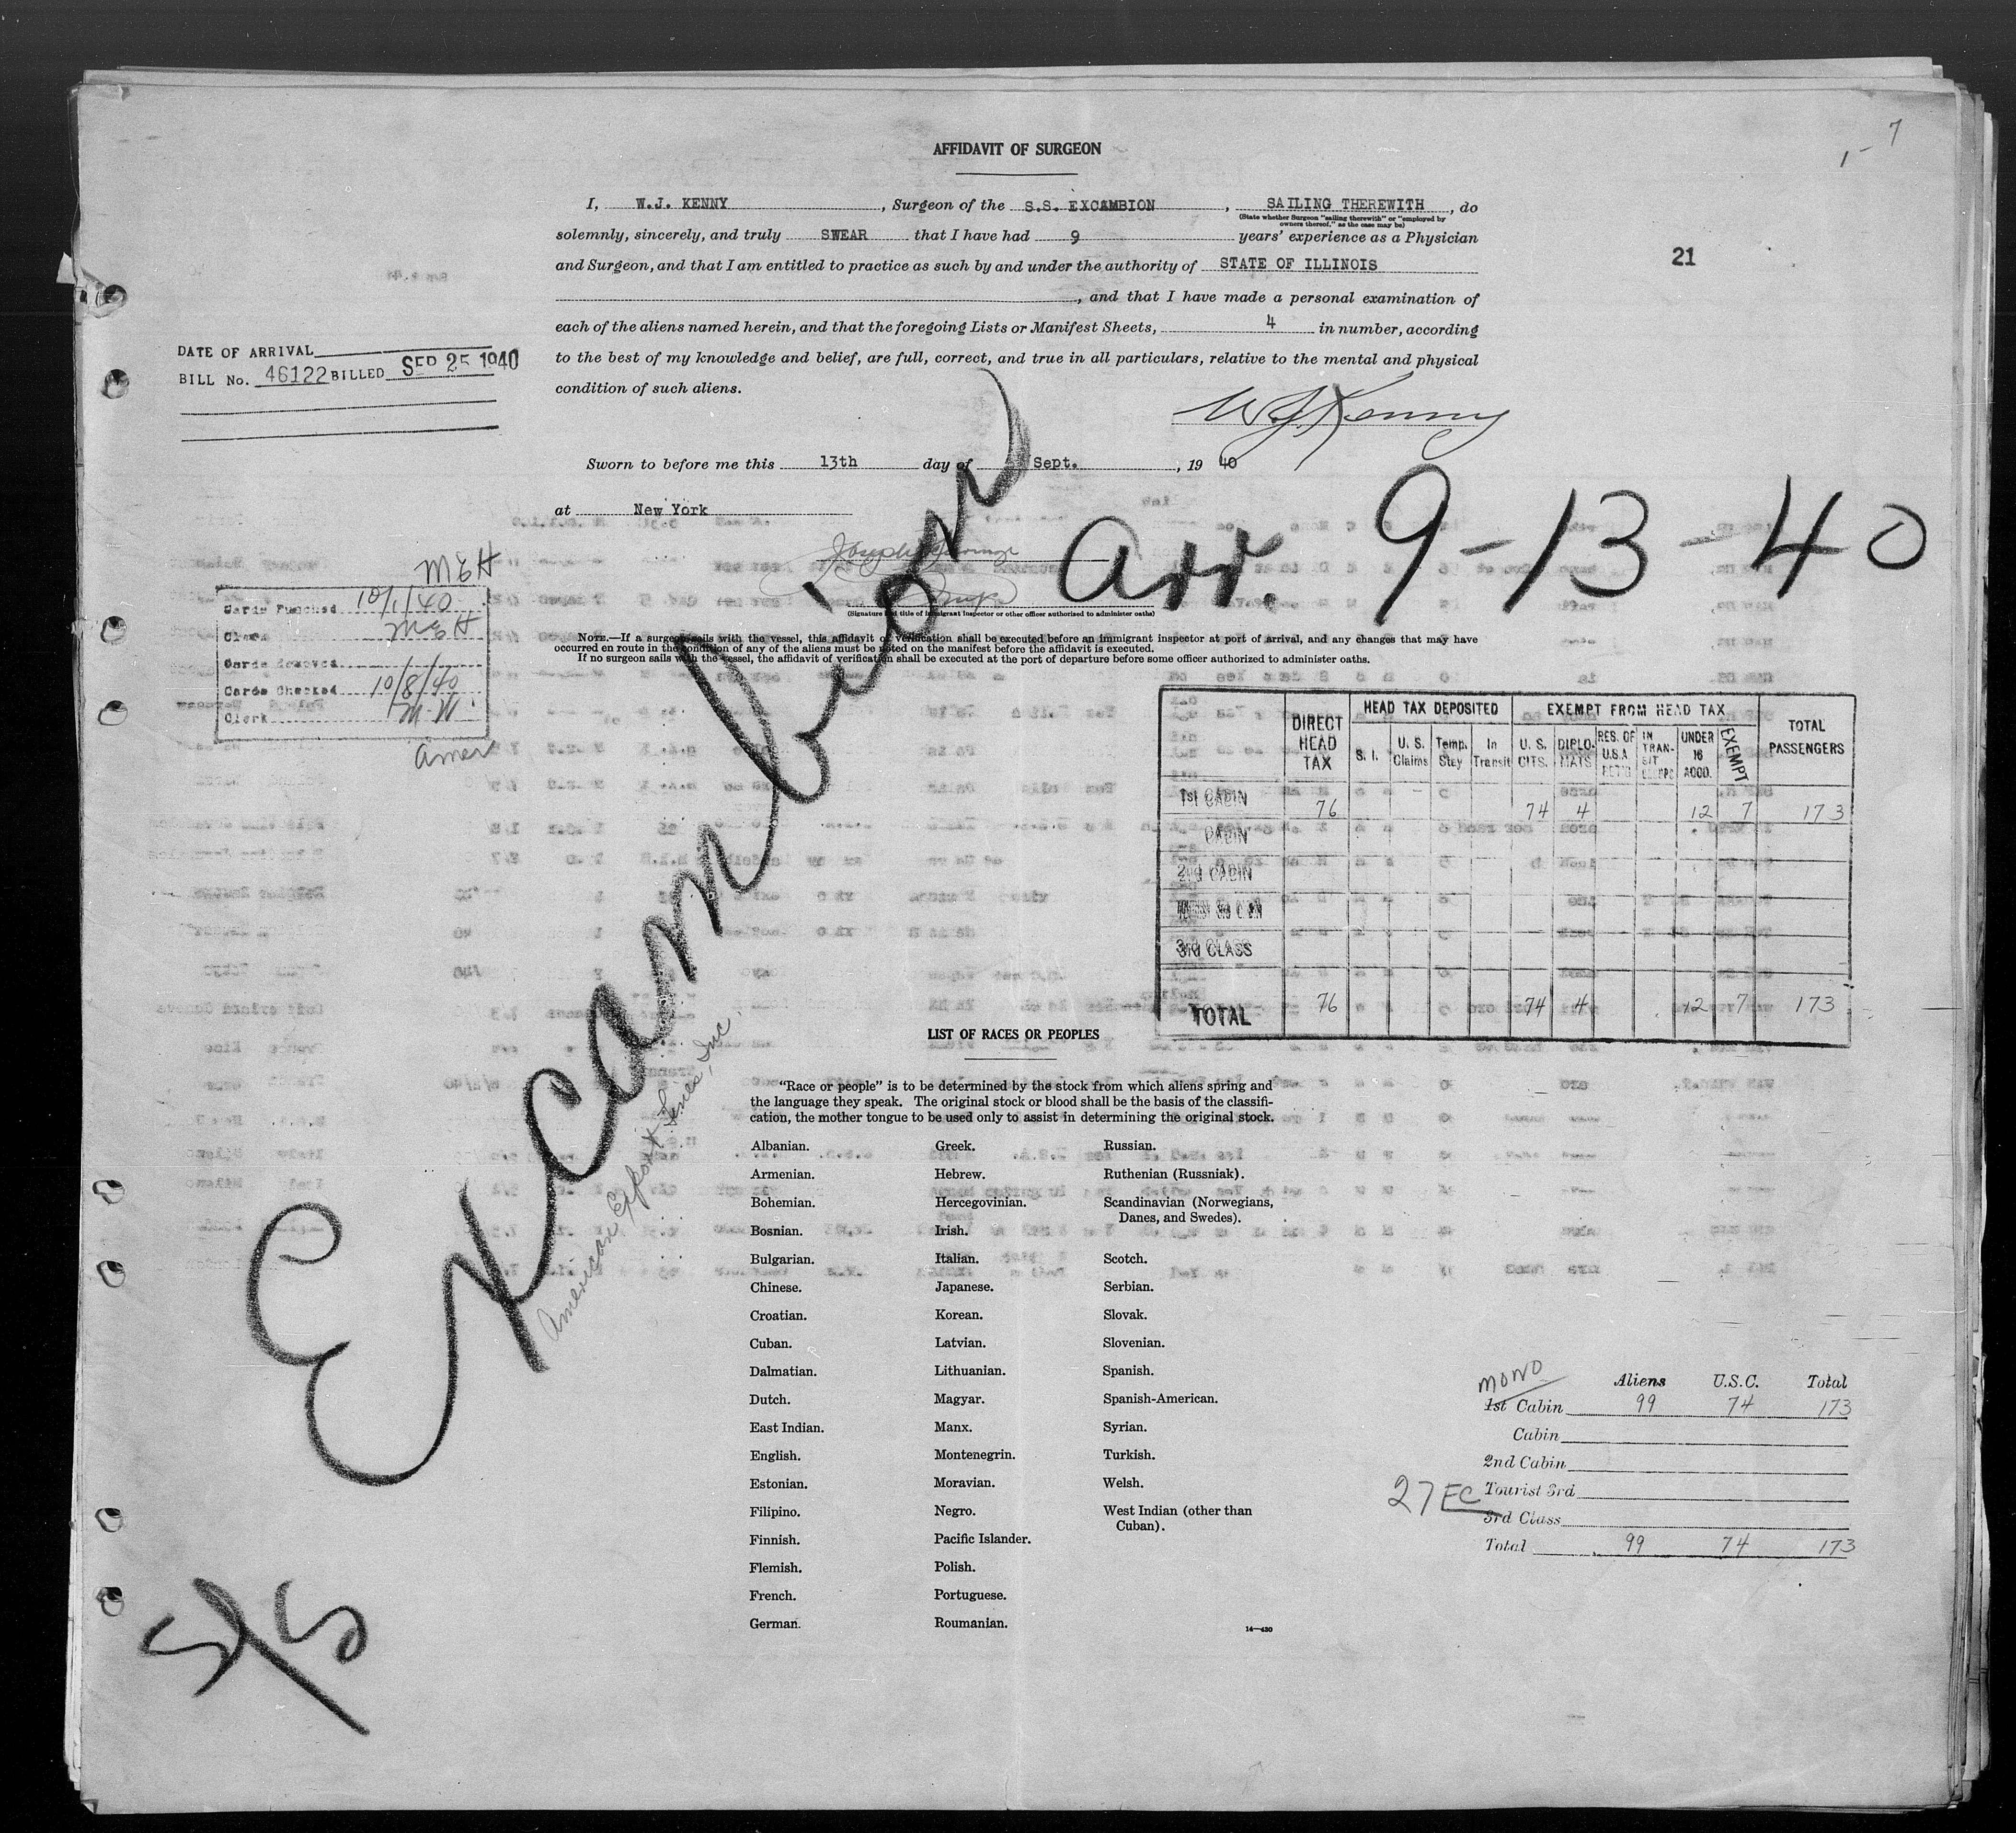 1-7
AFFIDAVIT OF SURGEON
I, W.J. KENNY, Surgeon of the S.S. EXCAMBION, SAILING THEREWITH, do
(State whether Surgeon "sailing therewith" or "employed by owners thereof," as the case may be)
solemnly, sincerely, and truly SWEAR that I have had 9 years' experience as a Physician
and Surgeon, and that I am entitled to practice as such by and under the authority of STATE OF ILLINOIS
21
, and that I have made a personal examination of
each of the aliens named herein, and that the foregoing Lists or Manifest Sheets, 4 in number, according
to the best of my knowledge and belief, are full, correct, and true in all particulars, relative to the mental and physical
condition of such aliens.
DATE OF ARRIVAL
BILL No. 46122 BILLED SEP 25 1940
W J Kenny
Sworn to before me this 13th day of Sept., 19 40
at New York
Arr. 9-13-40
(Signature and title of Immigrant Inspector or other officer authorized to administer oaths)
NOTE.—If a surgeon sails with the vessel, this affidavit of verification shall be executed before an immigrant inspector at port of arrival, and any changes that may have
occurred en route in the condition of any of the aliens must be noted on the manifest before the affidavit is executed.
If no surgeon sails with the vessel, the affidavit of verification shall be executed at the port of departure before some officer authorized to administer oaths.
MEH
Cards Punched 10/1/40
Clerk MEH
Cards Removed
Cards Checked 10/8/40
Clerk M.W.
Amer
Excambion
American Export Lines, Inc.
S/S
DIRECT HEAD TAX
HEAD TAX DEPOSITED
EXEMPT FROM HEAD TAX
TOTAL PASSENGERS
S. I. U. S. Claims Temp. Stay In Transit U. S. CITS. DIPLO-MATS RES. OF U.S.A RET'G IN TRAN-SIT UNDER 16 ACCD. EXEMPT
1st CABIN 76 74 4 12 7 173
CABIN
2nd CABIN
3rd CLASS
TOTAL 76 74 4 12 7 173
LIST OF RACES OR PEOPLES
"Race or people" is to be determined by the stock from which aliens spring and
the language they speak. The original stock or blood shall be the basis of the classifi-
cation, the mother tongue to be used only to assist in determining the original stock.
Albanian.
Armenian.
Bohemian.
Bosnian.
Bulgarian.
Chinese.
Croatian.
Cuban.
Dalmatian.
Dutch.
East Indian.
English.
Estonian.
Filipino.
Finnish.
Flemish.
French.
German.
Greek.
Hebrew.
Hercegovinian.
Irish.
Italian.
Japanese.
Korean.
Latvian.
Lithuanian.
Magyar.
Manx.
Montenegrin.
Moravian.
Negro.
Pacific Islander.
Polish.
Portuguese.
Roumanian.
Russian.
Ruthenian (Russniak).
Scandinavian (Norwegians,
Danes, and Swedes).
Scotch.
Serbian.
Slovak.
Slovenian.
Spanish.
Spanish-American.
Syrian.
Turkish.
Welsh.
West Indian (other than
Cuban).
14—430
MONO
Aliens U.S.C. Total
1st Cabin 99 74 173
Cabin
2nd Cabin
27 EC
Tourist 3rd
3rd Class
Total 99 74 173